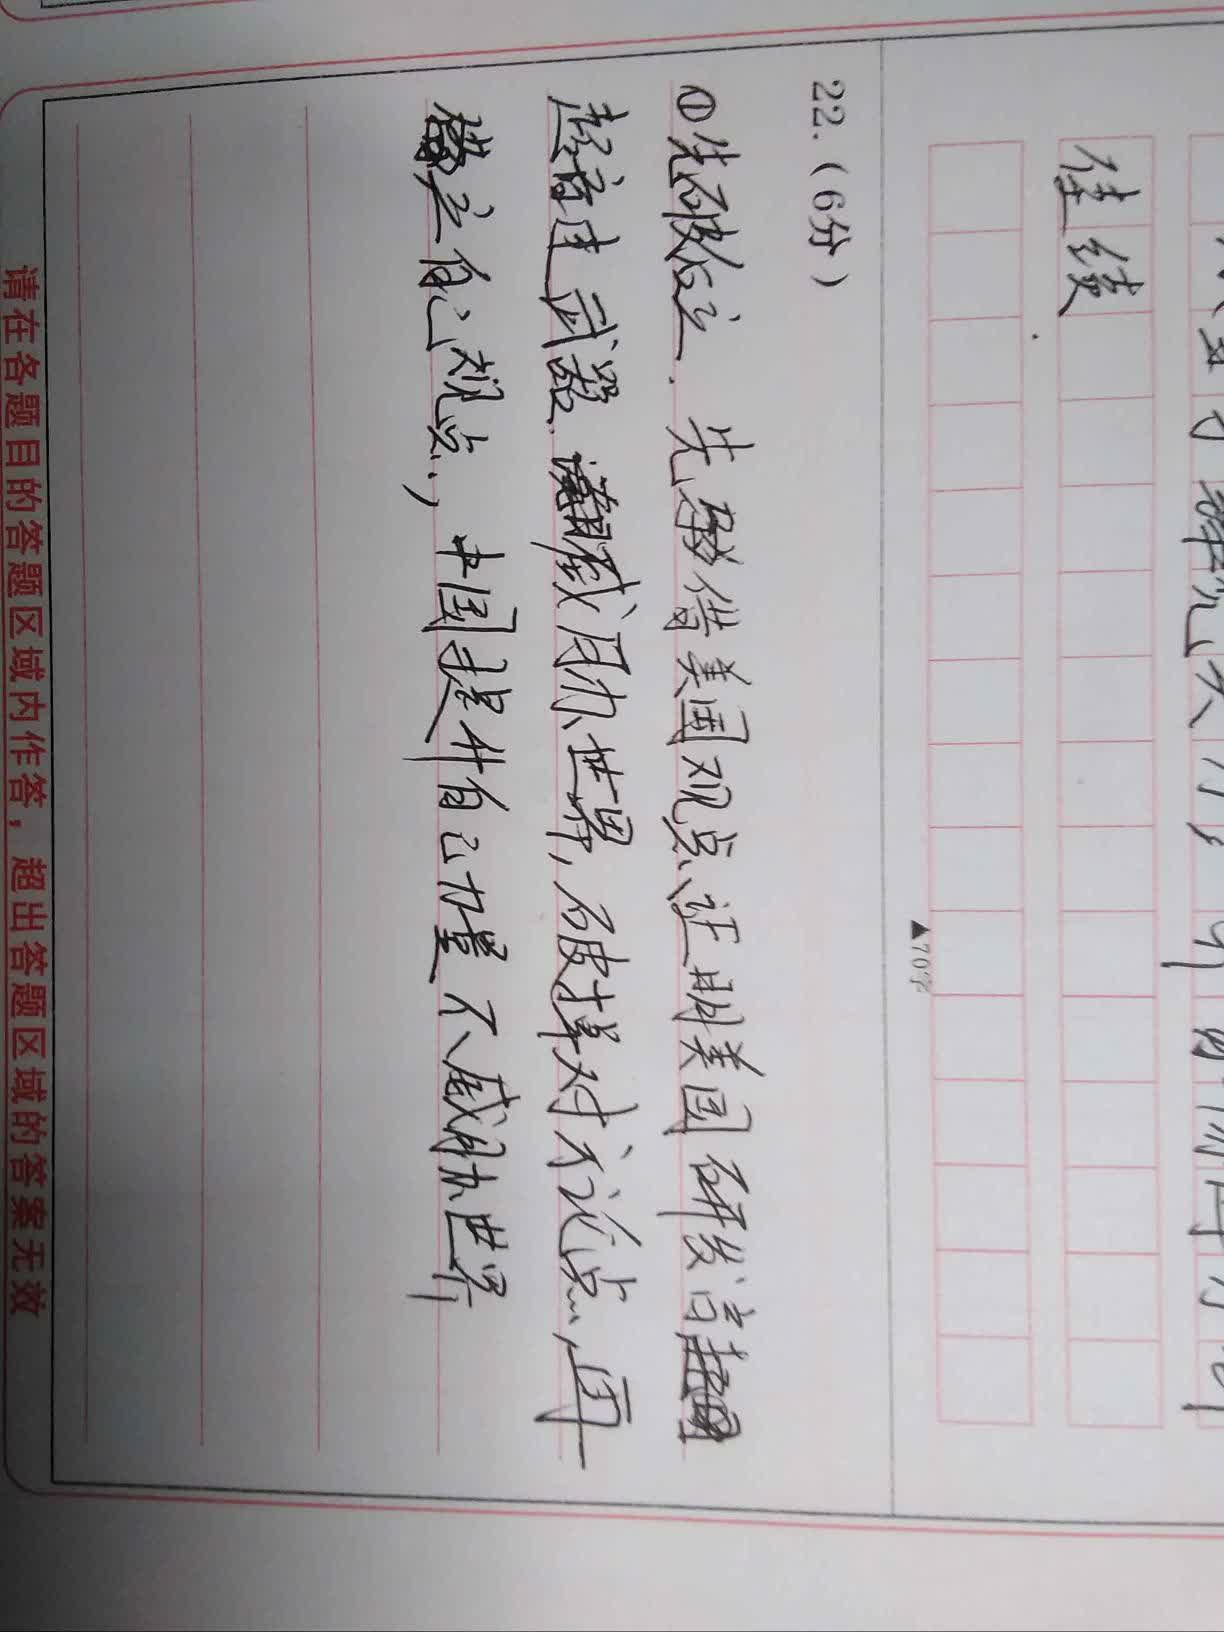 佳绩
▲70字
22.（6分）
①先破后立.先借美国观点证明美国研发高
超音速武器.威胁世界,反掉对方论点,再
立自己观点,中国提升自己力量不威胁世界
请在各题目的答题区域内作答，超出答题区域的答案无效